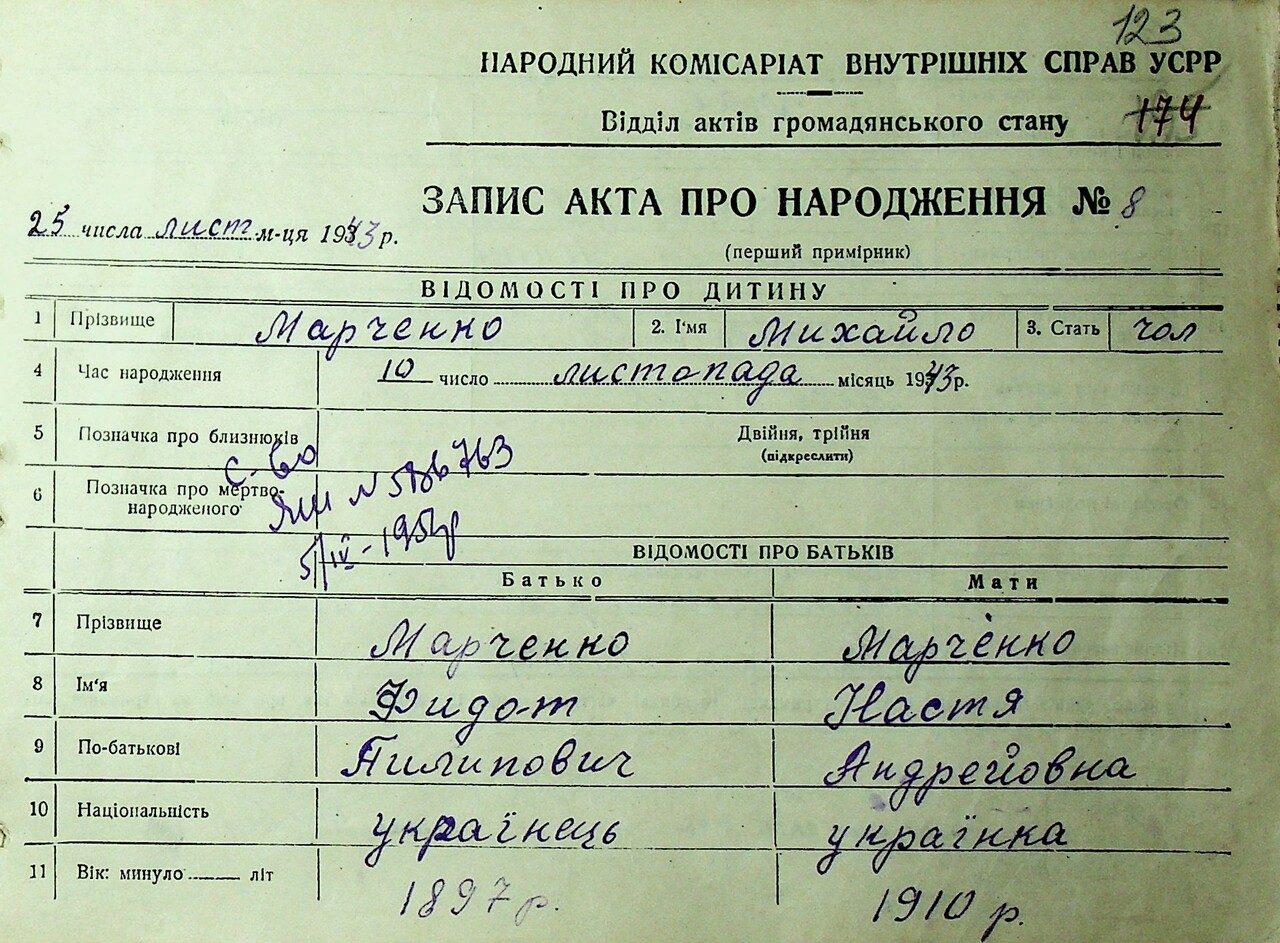 123
НАРОДНИЙ КОМІСАРІАТ ВНУТРІШНІХ СПРАВ УСРР
Відділ актів громадянського стану 174
ЗАПИС АКТА ПРО НАРОДЖЕННЯ № 8
25 числа лист м-ця 1943 р.
(перший примірник)
ВІДОМОСТІ ПРО ДИТИНУ
1 Прізвище Марченко 2. І'мя Михайло 3. Стать чол
4 Час народження 10 число листопада місяць 1943 р.
5 Позначка про близнюків Двійня, трійня
(підкреслити)
с-во
6 Позначка про мертво-
народженого
ЯШ N 586763
5/IV-195
ВІДОМОСТІ ПРО БАТЬКІВ
Батько Мати
7 Прізвище Марченко Марченко
8 Ім'я Фидот Настя
9 По-батькові Пилипович Андрейовна
10 Національність українець українка
11 Вік: минуло літ 1897 р. 1910 р.